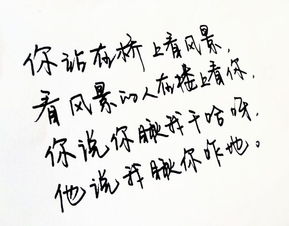 你站在桥上看风景，
看风景的人在楼上看你，
你说你瞅我干啥呀，
他说我瞅你咋地。